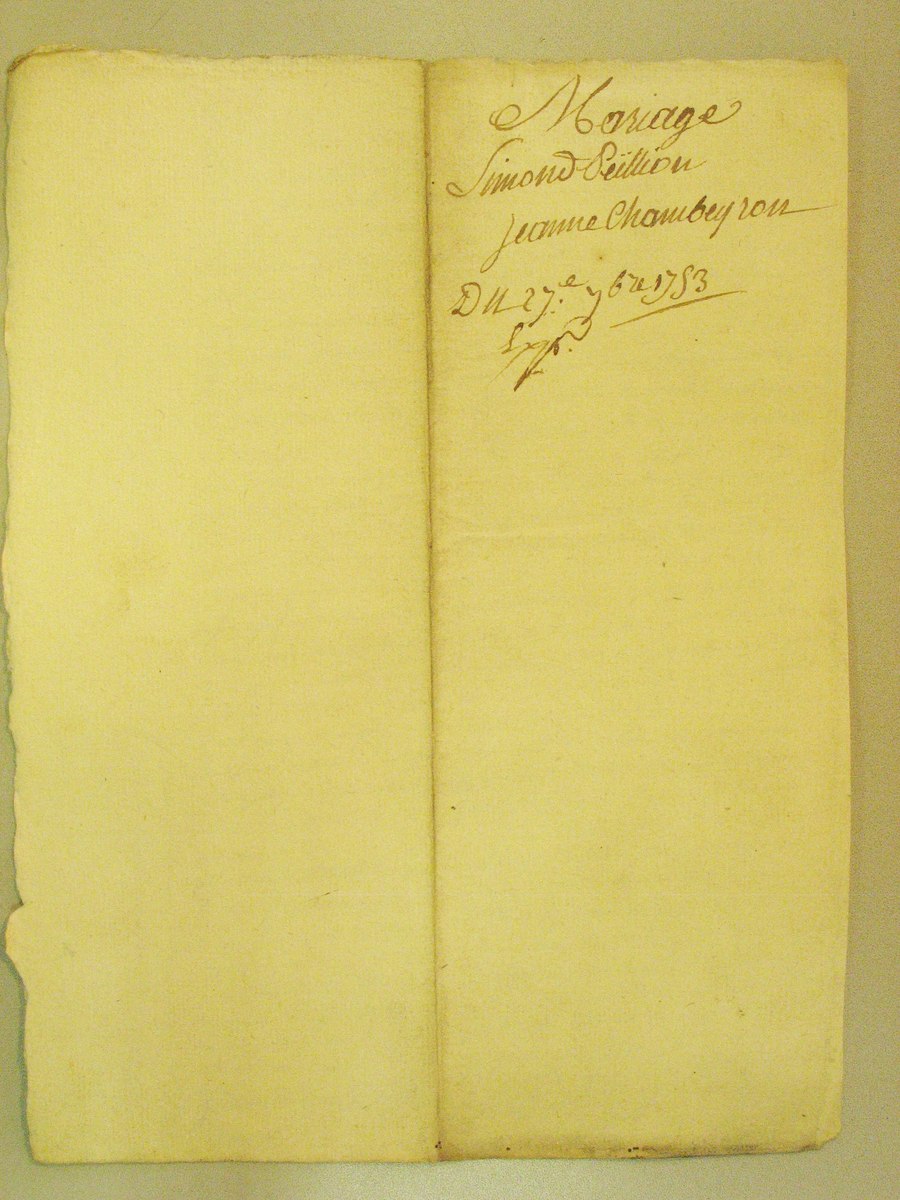 Mariage
Simond Peïllion
Jeanne Chambeyron
Du 27.e 7bre 1753
Exp.